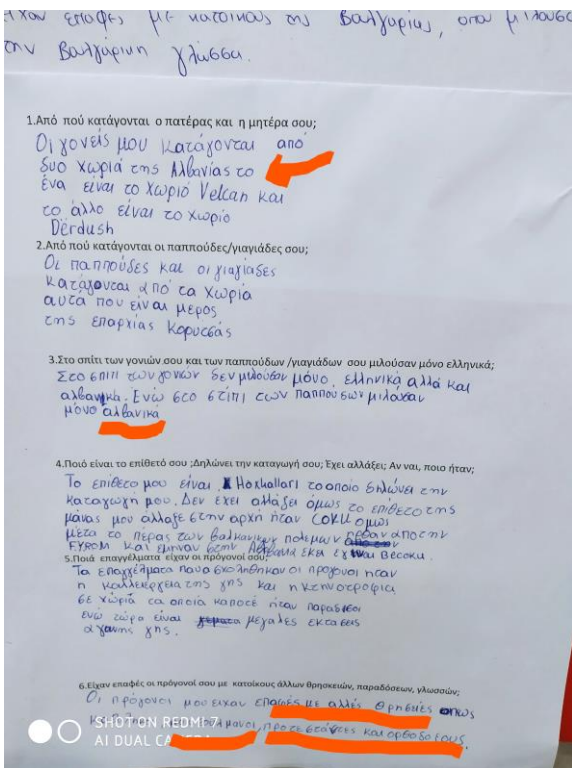 είχαν επαφές με κατοίκους της Βουλγαρίας, οπου μιλούσαν
την Βουλγάρικη γλώσσα.
1.Από πού κατάγονται ο πατέρας και η μητέρα σου;
Οι γονείς μου κατάγονται από
δυο χωριά της Αλβανίας το
ένα είναι το χωριό Velcan και
το άλλο είναι το χωριό
Dërdush
2.Από πού κατάγονται οι παππούδες/γιαγιάδες σου;
Οι παππούδες και οι γιαγιάδες
κατάγονται από τα χωρία
αυτά που είναι μερος
της επαρχίας Κορυτσάς
3.Στο σπίτι των γονιών σου και των παππούδων /γιαγιάδων σου μιλούσαν μόνο ελληνικά;
Στο σπιτι των γονιων δεν μιλουσαν μόνο ελληνικά αλλά και
αλβανικά. Ενώ στο σπίτι των παππουδων μιλουσαν
μόνο αλβανικά
4.Ποιό είναι το επίθετό σου ;Δηλώνει την καταγωγή σου; Έχει αλλάξει; Αν ναι, ποιο ήταν;
Το επίθετο μου είναι Hoxhallari το οποίο δηλώνει την
καταγωγή μου. Δεν έχει αλλάξει όμως το επίθετο της
μάνας μου άλλαξε στην αρχή ήταν COKU ομως
μετα το πέρας των βαλκανικων πολεμων ηρθαν απο την
FYROM και εμηναν στην Αλβανια εκει εγιναι Becoku.
5.Ποιά επαγγέλματα είχαν οι πρόγονοί σου;
Τα επαγγέλματα που ασχολήθηκαν οι πρόγονοι ήταν
η καλλιέργεια της γης και η κτηνοτροφία
σε χωριά τα οποία κάποτε ήταν παράδεισοι
ενώ τώρα είναι μεγάλες εκτασεις
άγονης γης.
6.Είχαν επαφές οι πρόγονοί σου με κατοίκους άλλων θρησκειών, παραδόσεων, γλωσσών;
Οι πρόγονοι μου ειχαν επαφές με αλλές θρησκίες οπως
προτεστάντες και ορθοδοξους.
SHOT ON REDMI 7
AI DUAL CA